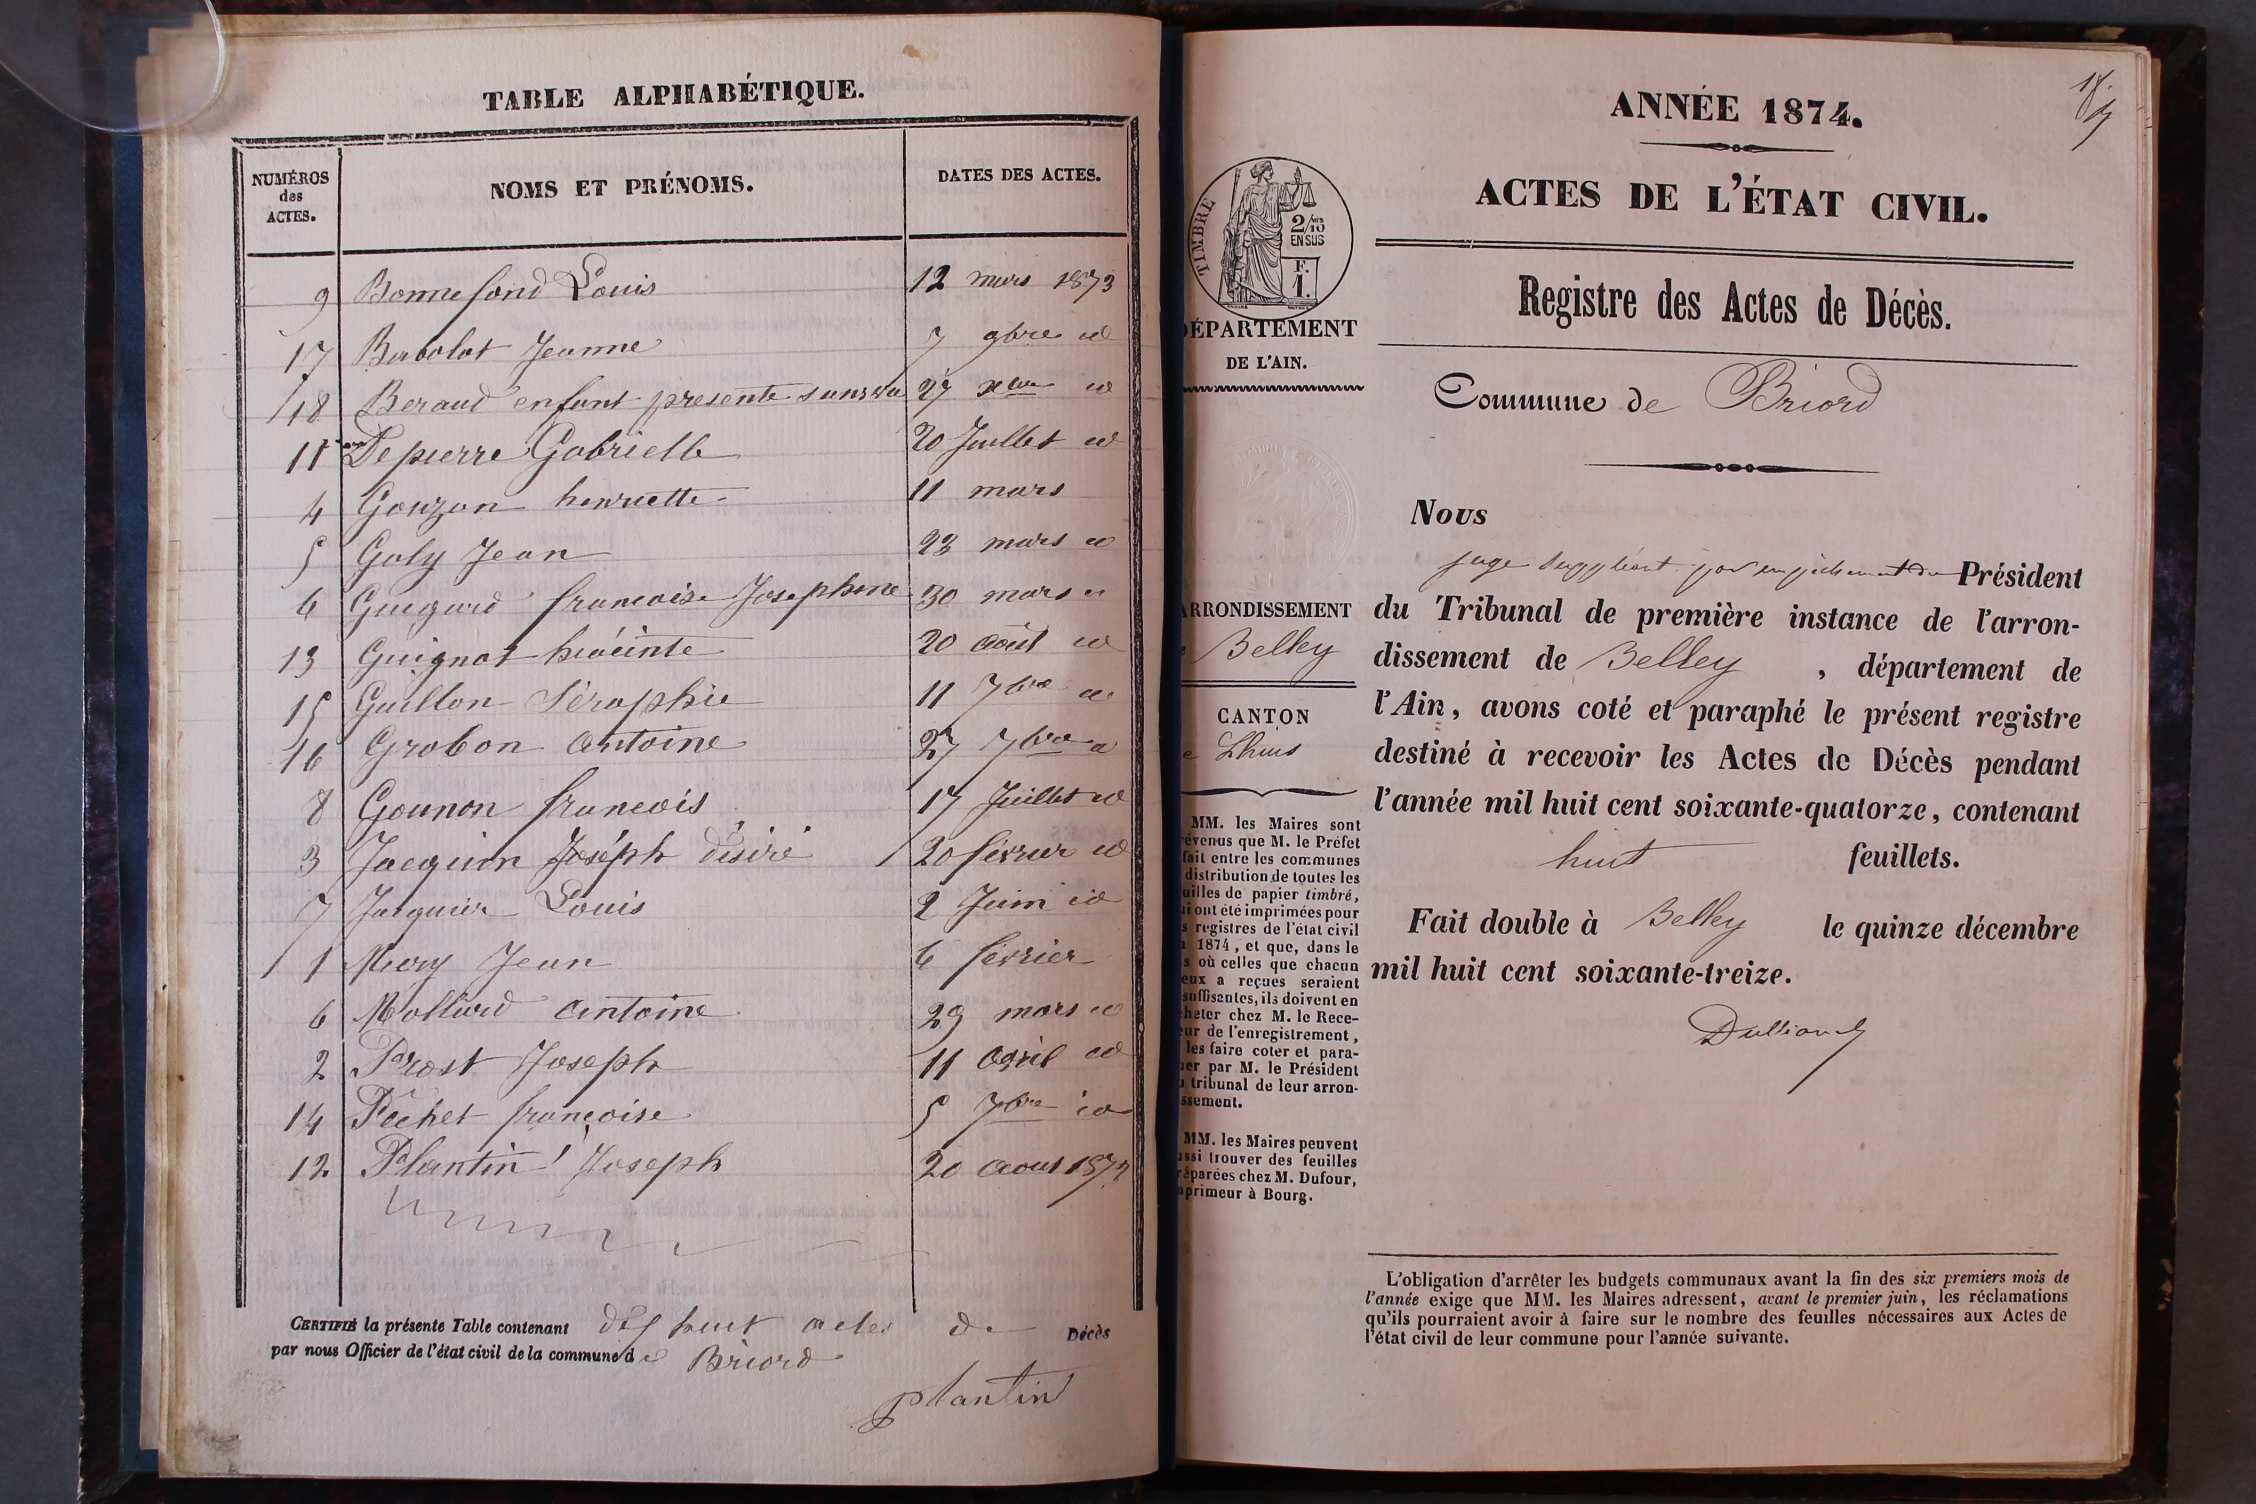 TABLE ALPHABÉTIQUE.
NUMÉROS des ACTES. NOMS ET PRÉNOMS. DATES DES ACTES.
9 Bonnefond Louis 12 mars 1873
17 Barolat Jeanne 7 9bre id
18 Beraud enfant presente sans vie 27 xbre id
11 Depierre Gabrielle 20 Juillet id
4 Gouzon henriette 11 mars
5 Goly Jean 23 mars id
6 francoise Josephine 30 mars id
13 Guignot hiacinte 20 août id
15 Guillon Séraphie 11 7bre id
16 Grobon antoine 27 7bre id
8 Gounon francois 17 Juillet id
3 Jacquin Joséph désiré 20 février id
7 Louis 2 Juin id
1 Jean 6 février
6 Mollard antoine 29 mars id
2 Prost Joseph 11 avril id
14 Pèchet francoise 5 7bre id
12 Plantin Joseph 20 aout 1873
CERTIFIÉ la présente Table contenant dix huit actes de Décès
par nous Officier de l'état civil de la commune de Briord
plantin
ANNÉE 1874.
ACTES DE L'ÉTAT CIVIL.
Registre des Actes de Décès.
Commune de Briord
TIMBRE
2/10
EN SUS
F.
1.
DÉPARTEMENT
DE L'AIN.
ARRONDISSEMENT
Belley
CANTON
de Lhuis
MM. les Maires sont
prévenus que M. le Préfet
fait entre les communes
distribution de toutes les
feuilles de papier timbré,
qui ont été imprimées pour
les registres de l'état civil
1874, et que, dans le
cas où celles que chacun
d'eux a reçues seraient
insuffisantes, ils doivent en
acheter chez M. le Rece-
veur de l'enregistrement,
les faire coter et para-
pher par M. le Président
du tribunal de leur arron-
dissement.
MM. les Maires peuvent
aussi trouver des feuilles
préparées chez M. Dufour,
imprimeur à Bourg.
Nous
juge suppléant par empêchement du Président
du Tribunal de première instance de l'arron-
dissement de Belley, département de
l'Ain, avons coté et paraphé le présent registre
destiné à recevoir les Actes de Décès pendant
l'année mil huit cent soixante-quatorze, contenant
huit feuillets.
Fait double à Belley le quinze décembre
mil huit cent soixante-treize.
L'obligation d'arrêter les budgets communaux avant la fin des six premiers mois de
l'année exige que MM. les Maires adressent, avant le premier juin, les réclamations
qu'ils pourraient avoir à faire sur le nombre des feuilles nécessaires aux Actes de
l'état civil de leur commune pour l'année suivante.